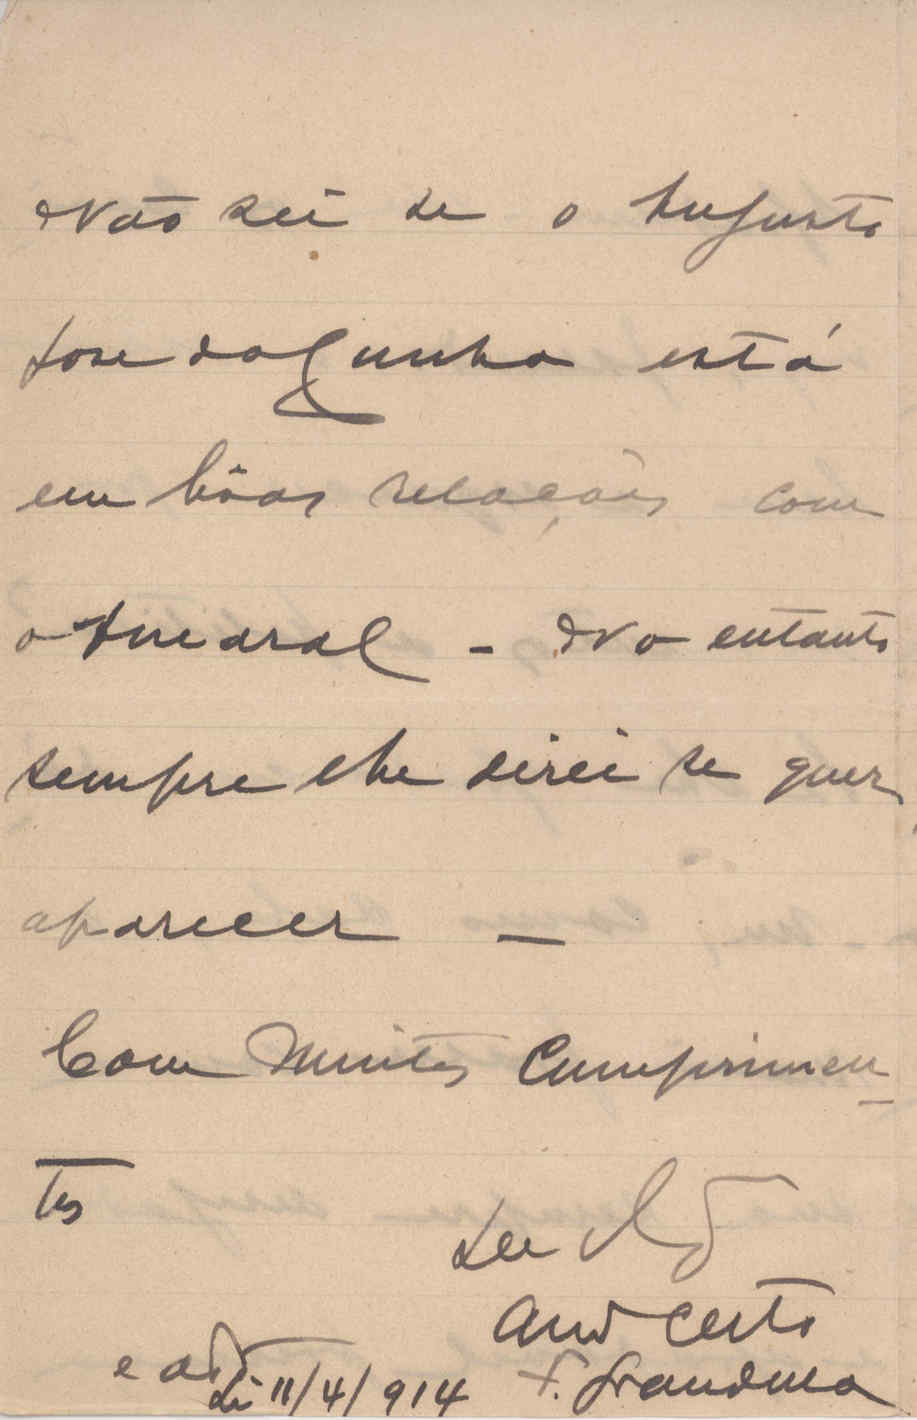 Não sei se o Augusto
José da Cunha está
em bôas relações com
o Amaral - No entanto
sempre lhe direi se quer
aparecer —
Com Muitos Cumprimen
tos
De
Amº Certo
F. Grandella
Lx 11/4/914